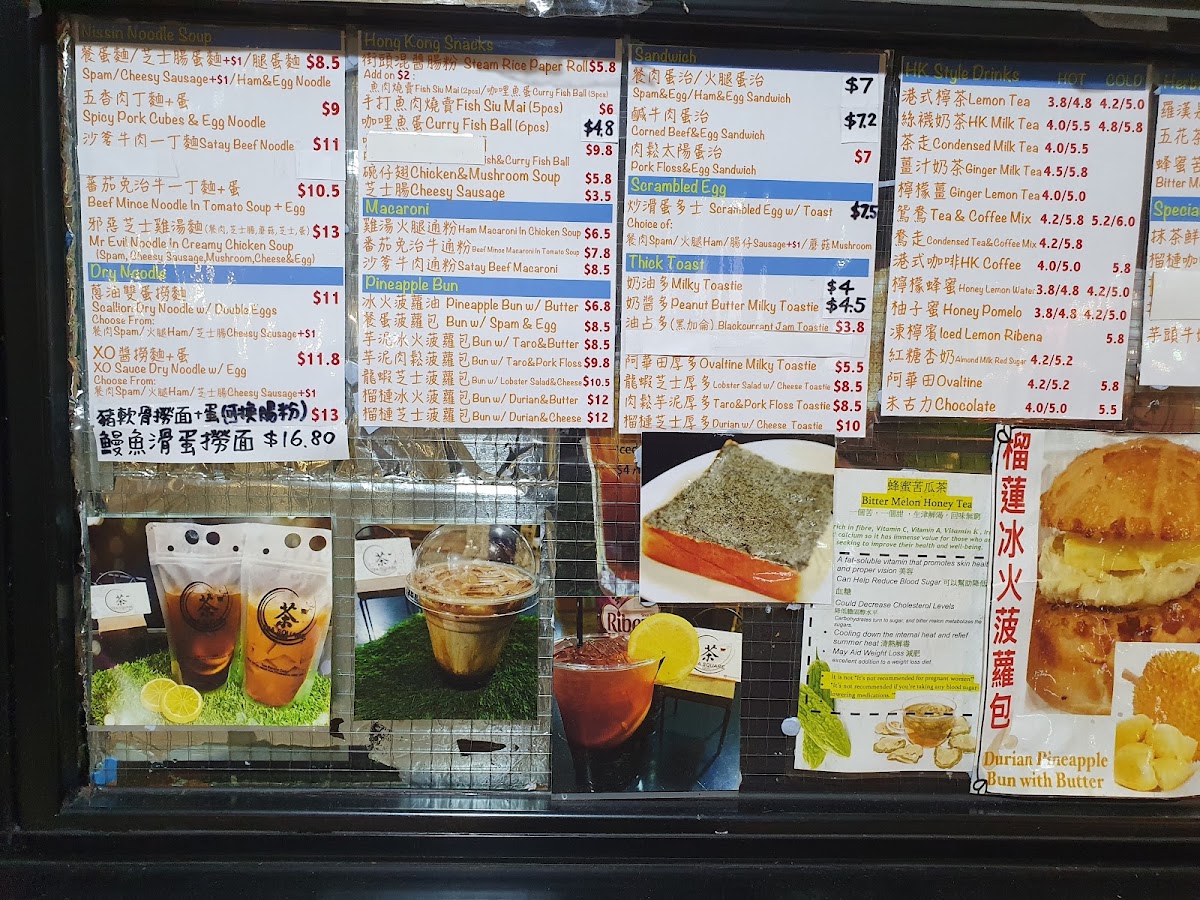 Nissin Noodle Soup
餐蛋麵/芝士腸蛋麵+$1/腿蛋麵 $8.5
Spam/Cheesy Sausage+$1/Ham&Egg Noodle
五香肉丁麵+蛋 $9
Spicy Pork Cubes & Egg Noodle
沙爹牛肉一丁麵Satay Beef Noodle $11
蕃茄兔治牛一丁麵+蛋 $10.5
Beef Mince Noodle In Tomato Soup + Egg
邪惡芝士雞湯麵(餐肉,芝士腸,蘑菇,芝士,蛋) $13
Mr Evil Noodle In Creamy Chicken Soup
(Spam,Cheesy Sausage,Mushroom,Cheese&Egg)
Dry Noodle
蔥油雙蛋撈麵 $11
Scallion Dry Noodle w/ Double Eggs
Choose From:
餐肉Spam/火腿Ham/芝士腸Cheesy Sausage+$1
XO醬撈麵+蛋 $11.8
XO Sauce Dry Noodle w/ Egg
Choose From:
餐肉Spam/火腿Ham/芝士腸Cheesy Sausage+$1
豬軟骨撈面+蛋(可換腸粉) $13
鰻魚滑蛋撈面 $16.80
Hong Kong Snacks
街頭混醬腸粉 Steam Rice Paper Roll $5.8
Add on $2 :
魚肉燒賣Fish Siu Mai (2pcs)/咖哩魚蛋Curry Fish Ball (3pcs)
手打魚肉燒賣Fish Siu Mai (5pcs) $6
咖哩魚蛋Curry Fish Ball (6pcs) $4.8
$9.8
ish&Curry Fish Ball
碗仔翅Chicken&Mushroom Soup $5.8
芝士腸Cheesy Sausage $3.5
Macaroni
雞湯火腿通粉Ham Macaroni In Chicken Soup $6.5
番茄兔治牛通粉Beef Mince Macaroni In Tomato Soup $7.8
沙爹牛肉通粉Satay Beef Macaroni $8.5
Pineapple Bun
冰火菠蘿油 Pineapple Bun w/ Butter $6.8
餐蛋菠蘿包 Bun w/ Spam & Egg $8.5
芋泥冰火菠蘿包Bun w/ Taro&Butter $8.5
芋泥肉鬆菠蘿包Bun w/ Taro&Pork Floss $9.8
龍蝦芝士菠蘿包Bun w/ Lobster Salad&Cheese $10.5
榴槤冰火菠蘿包Bun w/ Durian&Butter $12
榴槤芝士菠蘿包Bun w/ Durian&Cheese $12
Sandwich
餐肉蛋治/火腿蛋治 $7
Spam&Egg/Ham&Egg Sandwich
鹹牛肉蛋治 $7.2
Corned Beef&Egg Sandwich
肉鬆太陽蛋治 $7
Pork Floss&Egg Sandwich
Scrambled Egg
炒滑蛋多士 Scrambled Egg w/ Toast $7.5
Choice of:
餐肉Spam/火腿Ham/腸仔Sausage+$1/蘑菇Mushroom
Thick Toast
奶油多Milky Toastie $4
奶醬多Peanut Butter Milky Toastie $4.5
油占多(黑加侖) Blackcurrant Jam Toastie $3.8
阿華田厚多Ovaltine Milky Toastie $5.5
龍蝦芝士厚多Lobster Salad w/ Cheese Toastie $8.5
肉鬆芋泥厚多Taro&Pork Floss Toastie $8.5
榴槤芝士厚多Durian w/ Cheese Toastie $10
HK Style Drinks HOT COLD
港式檸茶Lemon Tea 3.8/4.8 4.2/5.0
絲襪奶茶HK Milk Tea 4.0/5.5 4.8/5.8
茶走Condensed Milk Tea 4.0/5.5
薑汁奶茶Ginger Milk Tea 4.5/5.8
檸檬薑Ginger Lemon Tea 4.0/5.0
鴛鴦Tea & Coffee Mix 4.2/5.8 5.2/6.0
鴦走Condensed Tea&Coffee Mix 4.2/5.8
港式咖啡HK Coffee 4.0/5.0 5.8
檸檬蜂蜜Honey Lemon Water 3.8/4.8 4.2/5.0
柚子蜜Honey Pomelo 3.8/4.8 4.2/5.0
凍檸賓Iced Lemon Ribena 5.8
紅糖杏奶Almond Milk Red Sugar 4.2/5.2
阿華田Ovaltine 4.2/5.2 5.8
朱古力Chocolate 4.0/5.0 5.5
Her
羅漢
五花茶
蜂蜜苦
Bitter M
Special
抹茶鮮
榴槤咖
芋頭牛奶
茶
茶
SQUARE
茶
茶
Ribe
茶
A SQUARE
蜂蜜苦瓜茶
Bitter Melon Honey Tea
一個苦，一個甜，生津解渴，回味無窮
rich in fibre, Vitamin C, Vitamin A, Vitamin K, ir
calcium so it has immense value for those who a
seeking to improve their health and well-being.
A fat-soluble vitamin that promotes skin healt
and proper vision 美容
Can Help Reduce Blood Sugar 可以幫助降低
血糖
Could Decrease Cholesterol Levels
降低膽固醇水平
Carbohydrates turn to sugar, and bitter melon metabolizes the
sugars.
Cooling down the internal heat and relief
summer heat 清熱解毒
May Aid Weight Loss 減肥
excellent addition to a weight loss diet.
It is not "It's not recommended for pregnant women"
"It's not recommended if you're taking any blood sugar
lowering medications."
榴蓮冰火菠蘿包
Durian Pineapple
Bun with Butter